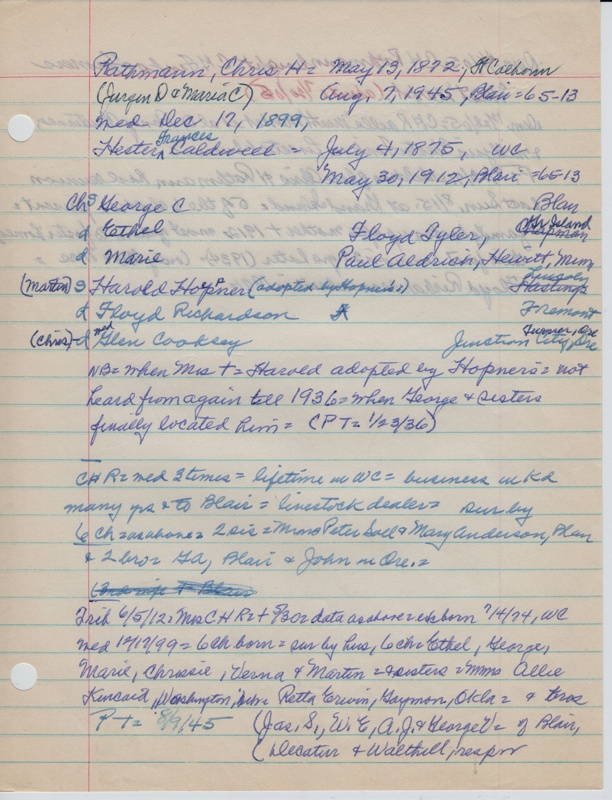 Rathmann, Chris H = May 13, 1872, Ft Calhoun
(Jurgen D & Maria C) Aug. 7, 1945, Blair = 65-13
med Dec 17, 1899,
Hester Frances Caldwell = July 4, 1875, WC
May 30, 1912, Blair = 65-13
Ch s George C Blair
d Ethel Floyd Tyler, Okla Island
d Marie Paul Aldrich, Hewitt Minn
(Martin) s Harold Hopner (adopted by Hopners) Lincoln Hastings
d Floyd Richardson Fremont
(Chris) d med Glen Cooksey Turner, Ore Junction City, Ore
NB = when Mrs + = Harold adopted by Hopners = not
heard from again till 1936 = when George & sisters
finally located him = (PT = 1/23/36)
CHR = med 2 times = lifetime in WC = business in Kd
many yrs & to Blair = livestock dealer = sur by
6 ch = as above = 2 sis = Mmes Peter Soll & Mary Anderson, Blair
& 2 bro = Ga, Blair & John in Ore. =
Trib 6/5/12 = Mrs CHR = + 5/30 = data as above = ex born 7/4/74, WC
med 12/17/99 = 6 ch born = sur by hus, 6 ch = Ethel, George,
Marie, Chrissie, Verna & Martin = & sisters = Mmes Allie
Kincaid, Washington, Retta Erwin, Guymon, Okla = & bros
PT = 8/9/45 (Jas. S., W.E, A.J. & George V = of Blair,
(Decatur & Walthill, resp